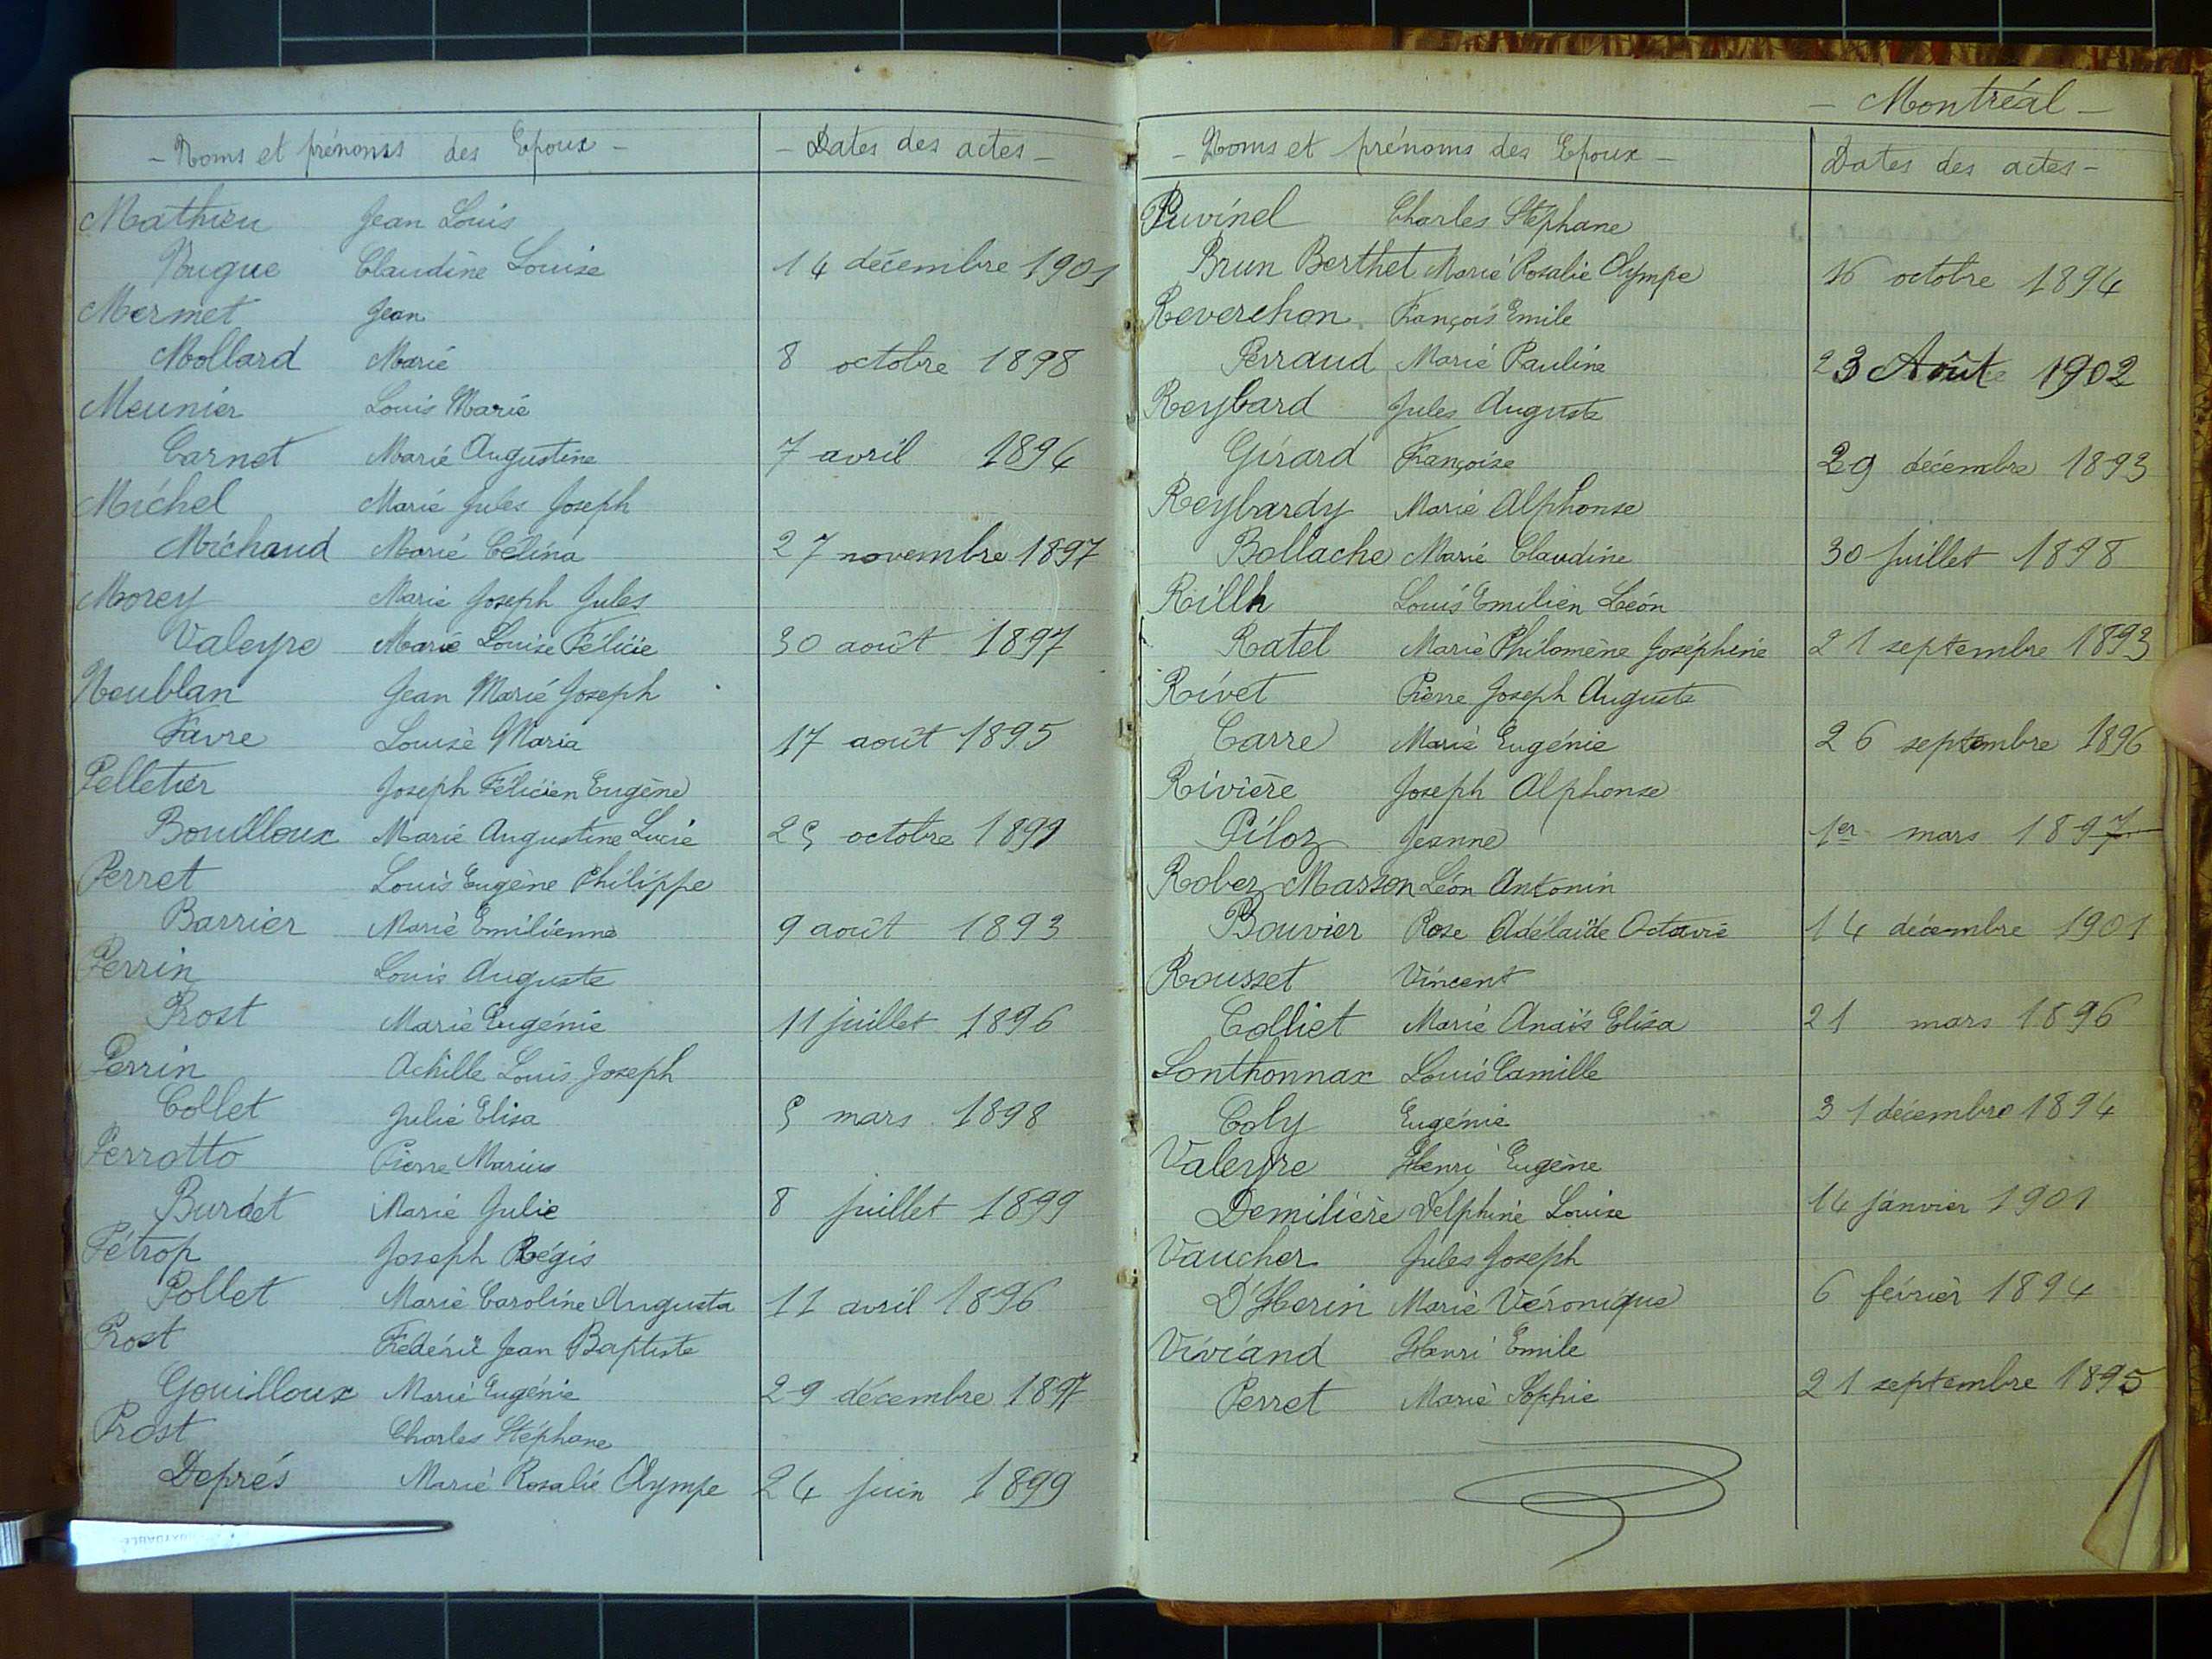 - Noms et prénoms des Epoux - - Dates des actes -
Mathieu Jean Louis
Pougue Claudine Louise 14 décembre 1901
Mermet Jean
Mollard Marie 8 octobre 1898
Meunier Louis Marie
Carnet Marie Augustine 7 avril 1894
Michel Marie Jules Joseph
Michaud Marie Célina 27 novembre 1897
Morey Marie Joseph Jules
Valeyre Marie Louise Félicie 30 août 1897
Noublan Jean Marie Joseph
Favre Louise Maria 17 août 1895
Pelletier Joseph Félicien Eugène
Bouilloux Marie Augustine Lucie 25 octobre 1899
Perret Louis Eugène Philippe
Barrier Marie Emilienne 9 août 1893
Perrin Louis Auguste
Prost Marie Eugénie 11 juillet 1896
Perrin Achille Louis Joseph
Collet Julie Elisa 5 mars 1898
Perrotto Pierre Marius
Burdet Marie Julie 8 juillet 1899
Pétrop Joseph Régis
Pollet Marie Caroline Augusta 11 avril 1896
Prost Fédéric Jean Baptiste
Gouilloux Marie Eugénie 29 décembre 1897
Prost Charles Stéphane
Deprés Marie Rosalie Olympe 24 juin 1899
- Montréal -
- Noms et prénoms des Epoux - Dates des actes -
Puvinel Charles Stéphane
Brun Berthet Marie Rosalie Olympe 16 octobre 1894
Reverchon François Emile
Perraud Marie Pauline 23 Août 1902
Reybard Jules Auguste
Girard Françoise 29 décembre 1893
Reybardy Marie Alphonse
Bollache Marie Claudine 30 juillet 1898
Rillh Louis Emilien Léon
Ratel Marie Philomène Joséphine 21 septembre 1893
Rivet Pierre Joseph Auguste
Carre Marie Eugénie 26 septembre 1896
Rivière Joseph Alphonse
Piloz Jeanne 1er mars 1897
Robez Masson Léon Antonin
Bouvier Rose Adélaïde Octavie 14 décembre 1901
Rousset Vincent
Colliet Marie Anaïs Elisa 21 mars 1896
Sonthonnax Louis Camille
Coly Eugénie 31 décembre 1894
Valeyre Henri Eugène
Demilière Delphine Louise 14 janvier 1901
Vaucher Jules Joseph
D'Herin Marie Véronique 6 février 1894
Viviand Henri Emile
Perret Marie Sophie 21 septembre 1895